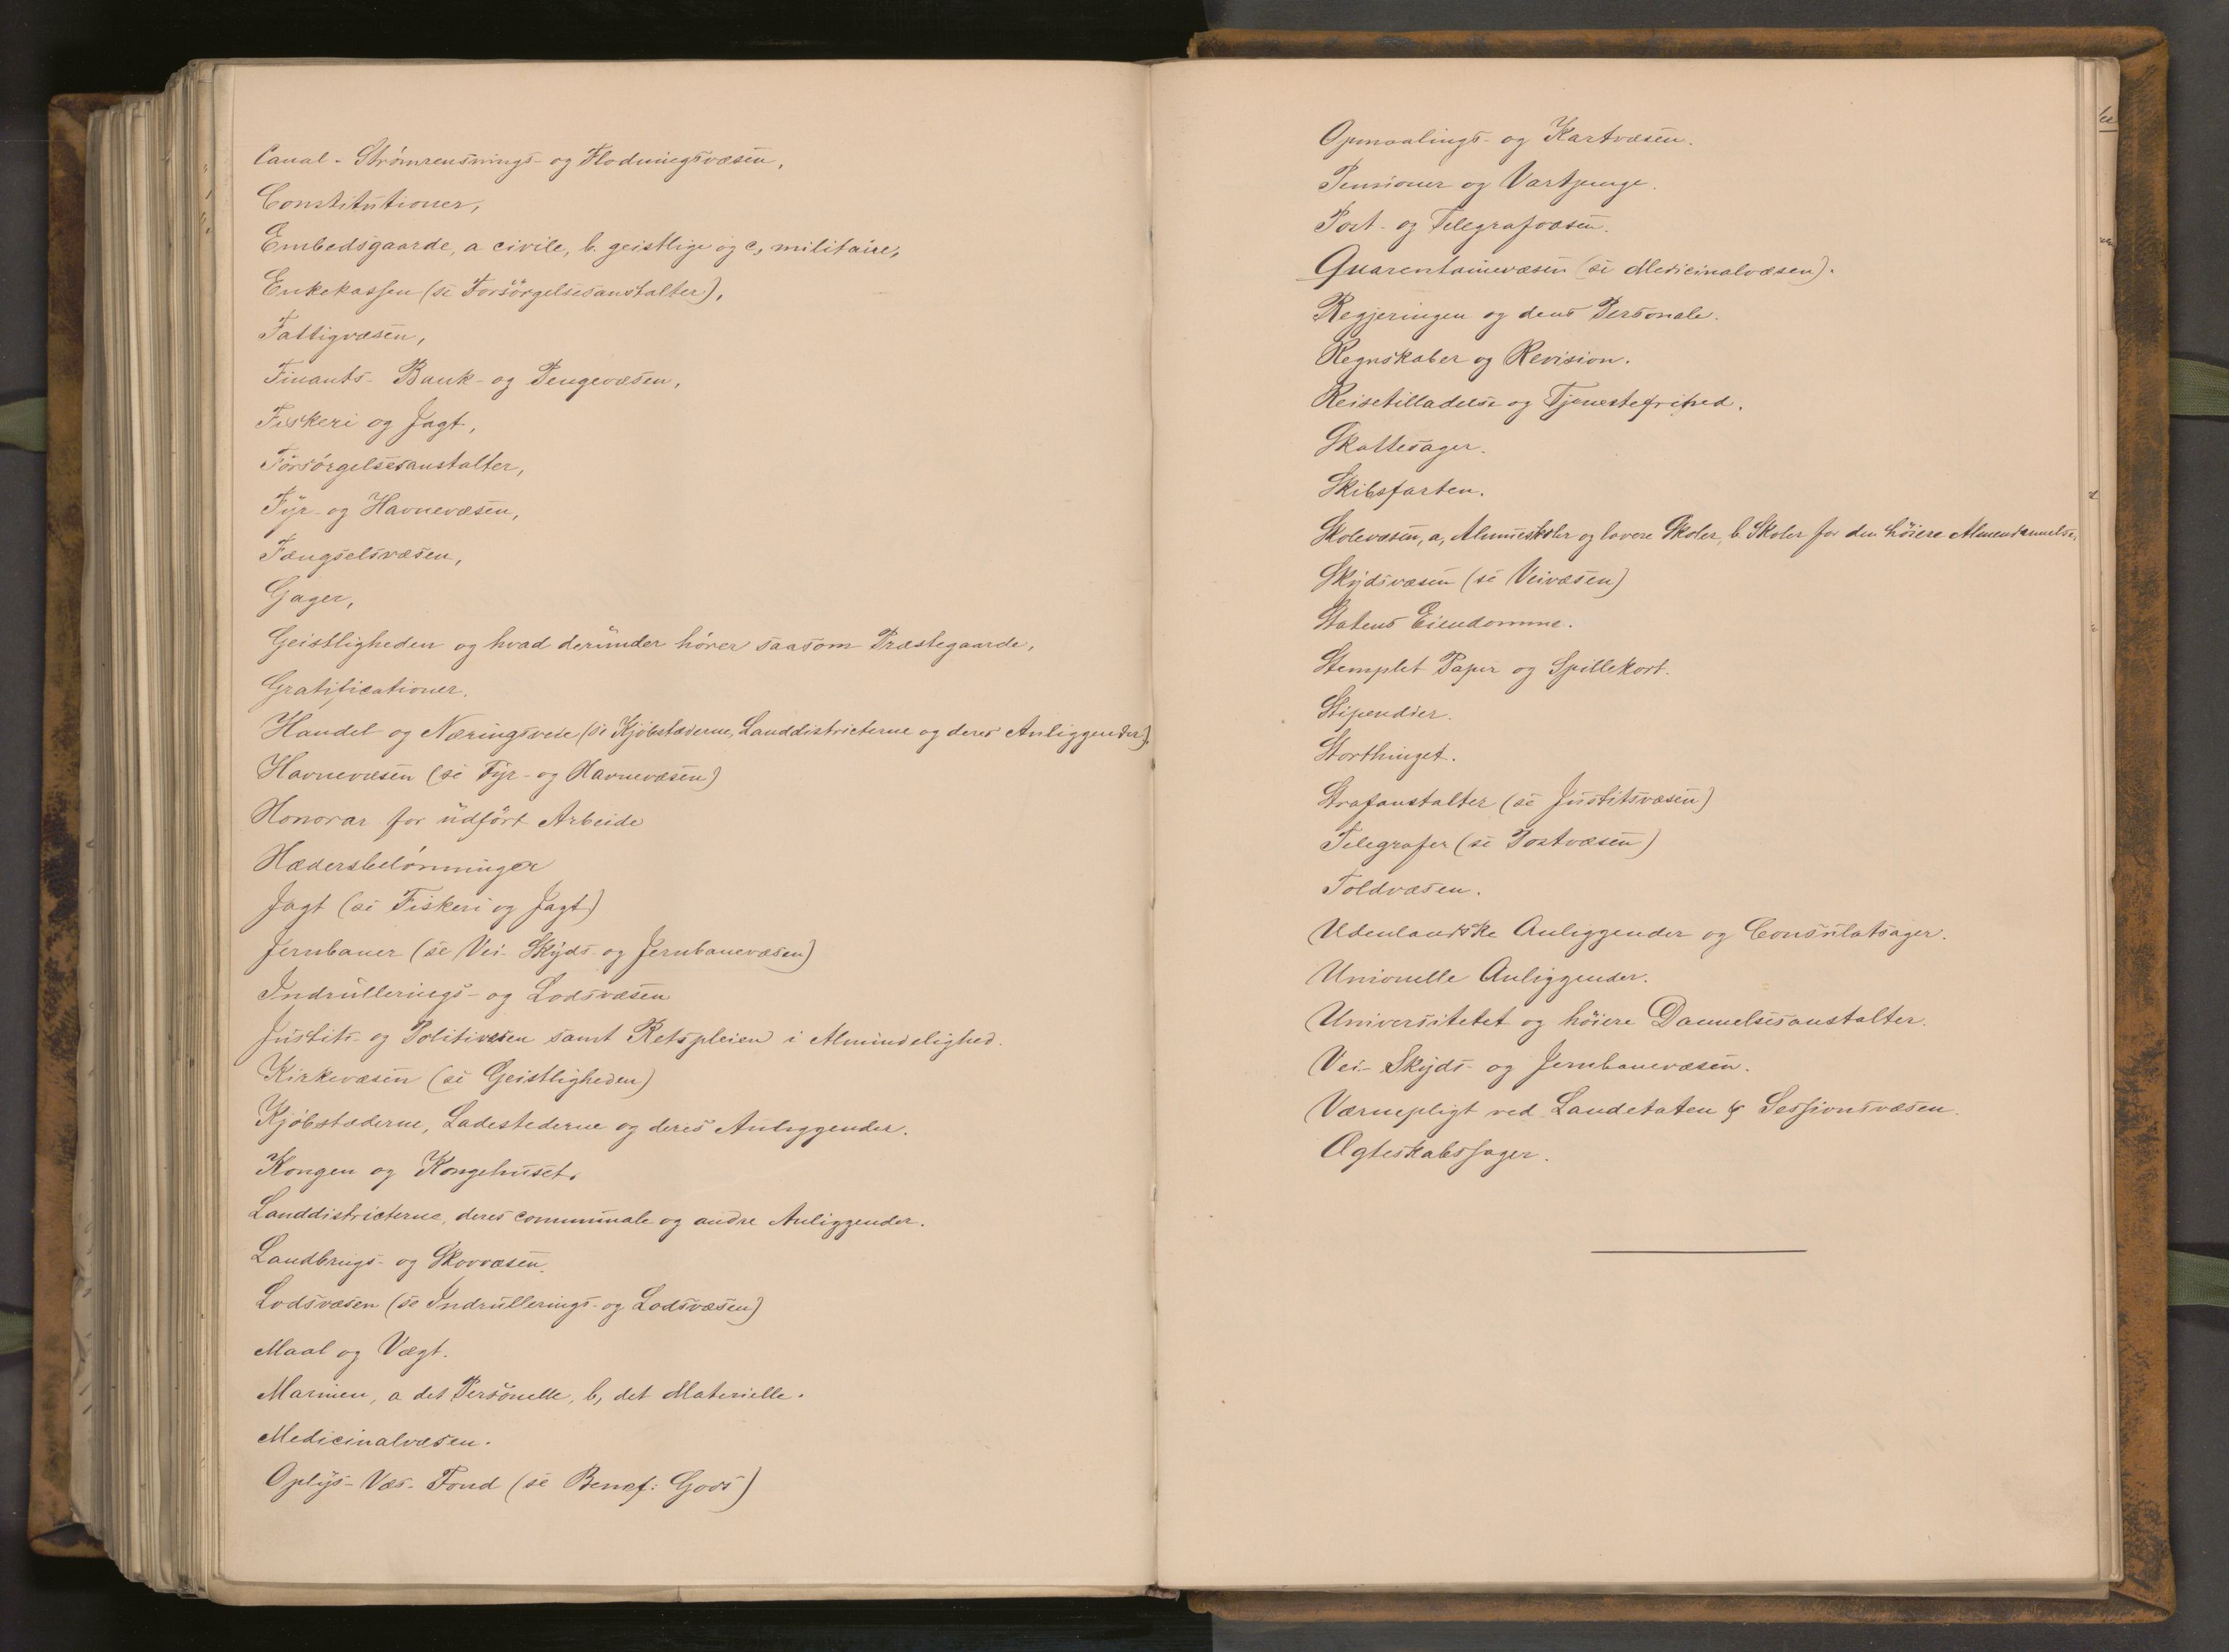 Canal- Strømrensnings- og Flødningsvæsen,
Constitutioner,
Embedsgaarde, a civile, b. geistlige og c, militaire,
Enkekassen (se Forsörgelsesanstalter),
Fattigvæsen,
Finants- Bank- og Pengevæsen,
Fiskeri og Jagt,
Forsórgelsesanstalter,
Fyr- og Havnevæsen,
Fængselsvæsen,
Gager,
Geistligheden og hvad derunder hórer saasom Præstegaarde,
Gratificationer.
Handel og Næringsveie (se Kjóbstæderne, Landdistricterne og deres Anliggender).
Havnevæsen (se Fyr- og Havnevæsen)
Honorar for udfört Arbeide
Hædersbelónninger
Jagt (se Fiskeri og Jagt)
Jernbaner (se Vei- Skyds- og Jernbanevæsen)
Indrullerings- og Lodsvæsen
Justits- og Politivæsen samt Retspleien i Almindelighed.
Kirkevæsen (se Geistligheden)
Kjóbstæderne, Ladestederne og deres Anliggender.
Kongen og Kongehuset.
Landdistricterne, deres communale og andre Anliggender.
Landbrugs- og Skovvæsen.
Lodsvæsen (se Indrullerings- og Lodsvæsen)
Maal og Vægt.
Marinen, a det Personelle, b, det Materielle.
Medicinalvæsen.
Oplys- Væs- Fond (se Benef: Gods)
Opmaalings- og Kartvæsen.
Pensioner og Vartpenge.
Post- og Telegrafvæsen.
Quarentainevæsen (se Medicinalvæsen).
Regjeringen og dens Personale.
Regnskaber og Revision.
Reisetilladelse og Tjenestefrihed.
Skattesager.
Skibsfarten.
Skolevæsen, a, Almueskoler og lavere Skoler, b. Skoler for den höiere Almendannelse.
Skydsvæsen (se Veivæsen)
Statens Eiendomme.
Stemplet Papir og Spillekort.
Stipendier.
Storthinget.
Strafanstalter (se Justitsvæsen)
Telegrafer (se Postvæsen)
Toldvæsen.
Udenlandske Anliggender og Consulatsager.
Unionelle Anliggender.
Universitetet og höiere Dannelsesanstalter.
Vei- Skyds- og Jernbanevæsen.
Værnepligt ved Landetaten & Sessionsvæsen.
Ægteskabssager.